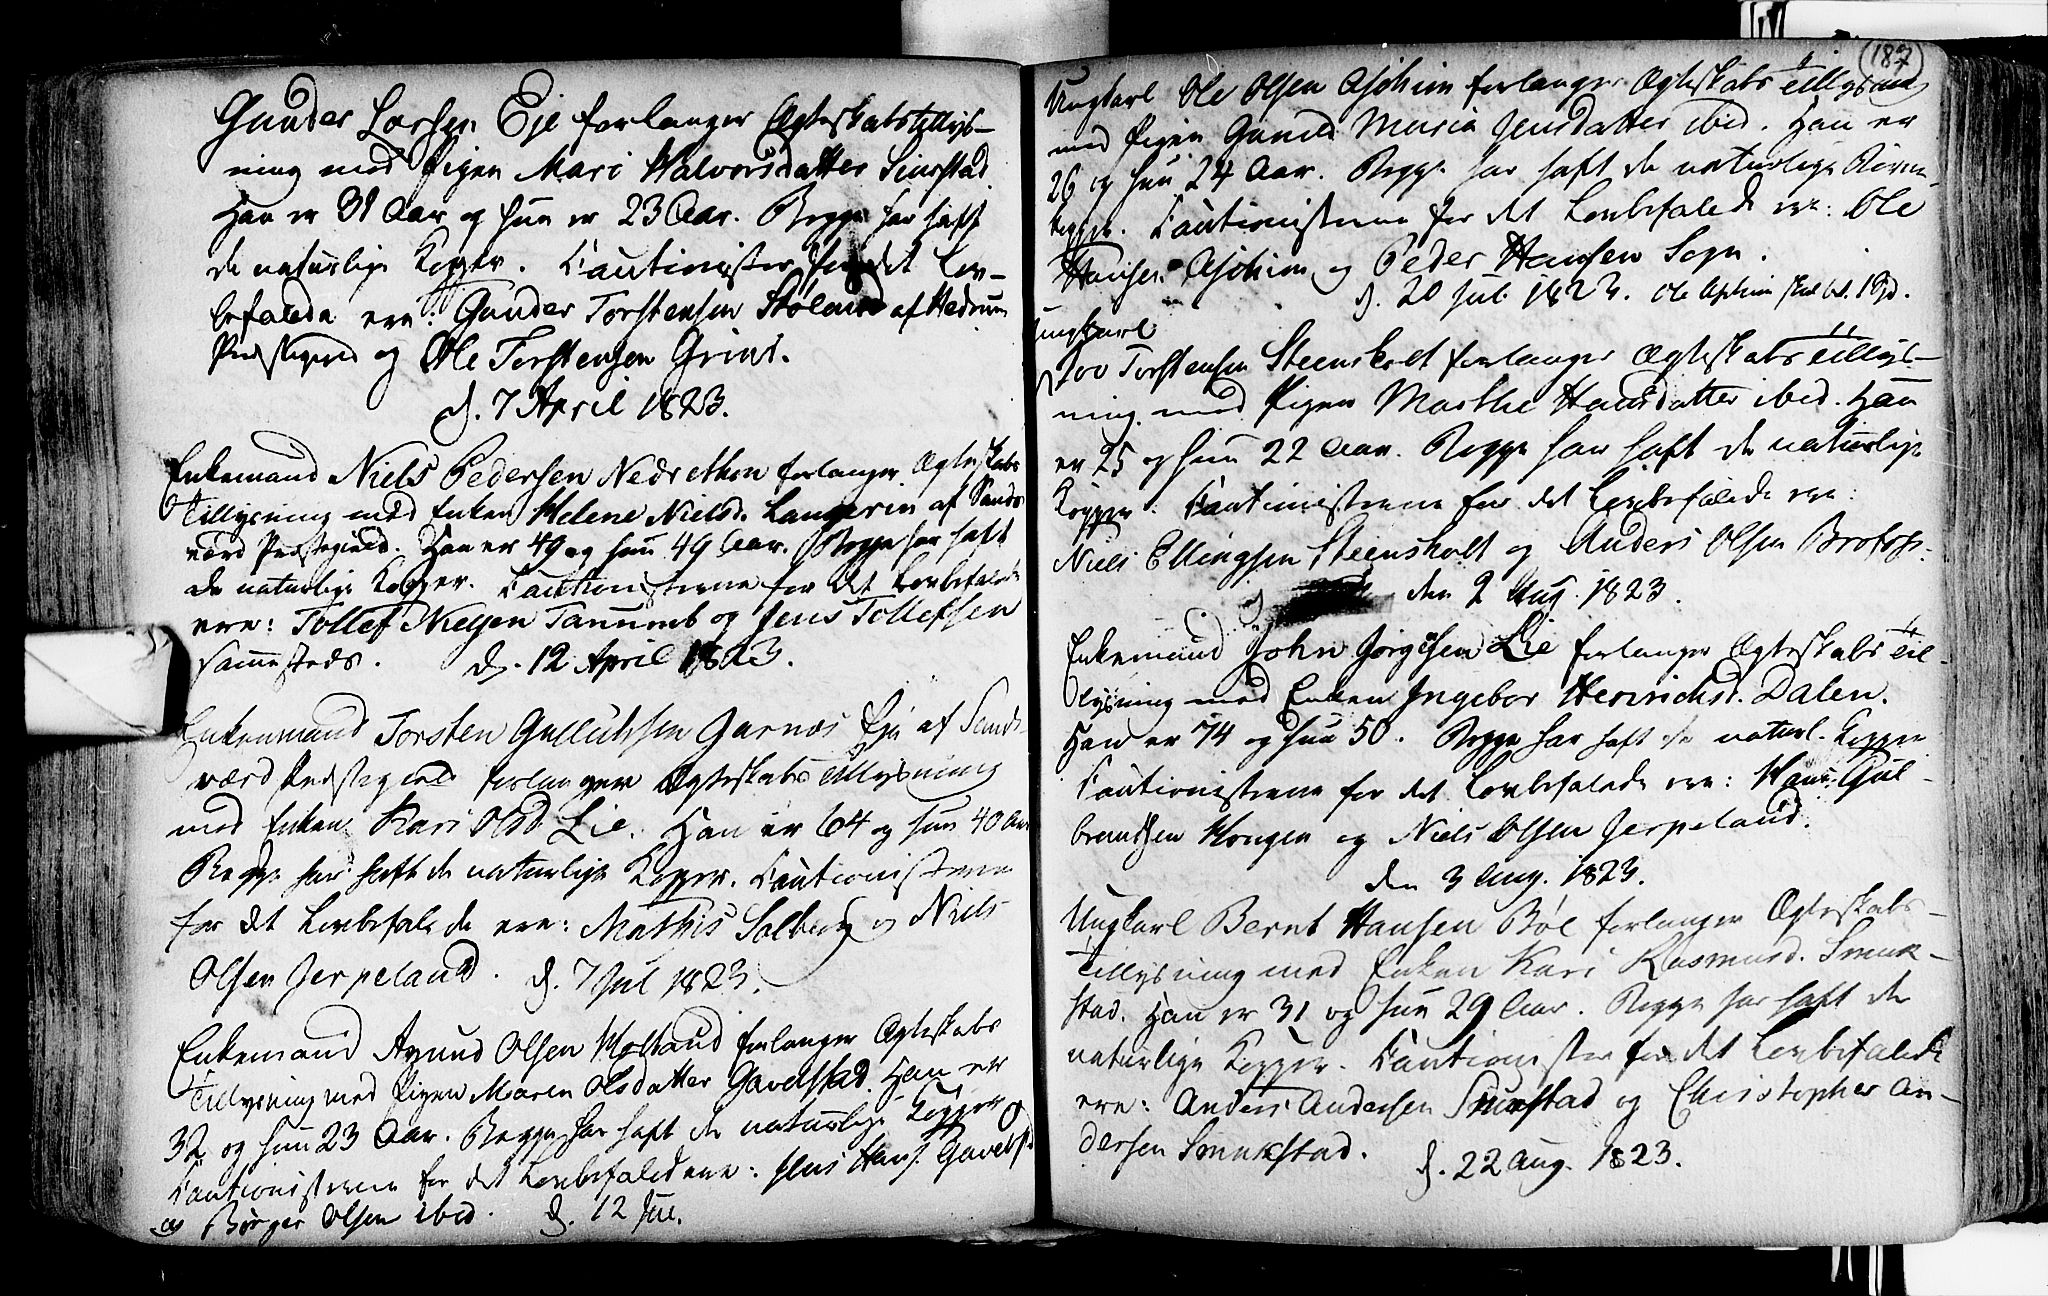 Gunder Larsen Eje forlanger Ægteskabstillys-
ning med Pigen Mari Halvorsdatter
Han er 31 Aar og hun er 23 Aar. Begge har haft
de naturlige Kopper. Cautionister for det Lov-
befalede ere: Gunder Torstensen af Hedrum
Præstegield og Ole Torstensen Grini.
d. 7 April 1823.
Enkemand Niels Pedersen Nedre forlanger Ægteskabs
Tillysning med Enken Helene Nielsd. Langerin af Sande-
værd Præstegield. Han er 49 og hun 49 Aar. Begge har haft
de naturlige Kopper. Cautionisterne for det Lovbefalede
ere: Tollef og Jens Tollefsen
sammesteds. d. 12 April 1823.
Enkemand Torsten Gulliksen Eje af Sands-
værd Præstegield forlanger Ægteskabs Tillysning
med Enken Kari Olsd. Lie. Han er 64 og hun 40 Aar
Begge har haft de naturlige Kopper. Cautionisterne
for det Lovbefalede ere: Mathis Solberg og Niels
Olsen Jerpeland. d. 7 Jul 1823.
Enkemand Amund Olsen forlanger Ægteskabs
Tillysning med Pigen Maren Olsdatter Gavelstad. Han er
32 og hun 23 Aar. Begge har haft de naturlige Kopper
Cautionisterne for det Lovbefalede ere: Jens Hans. Gavelst.
og Børger Olsen ibid. d. 12 Jul.
187
Ungkarl Ole Olsen Askim forlanger Ægteskabs Tillysning
med Pigen Maria Jensdatter ibid. Han er
26 og hun 24 Aar. Begge har haft de naturlige Børne-
kopper. Cautionisterne for det Lovbefalede ere: Ole
Hansen Askim og Peder Hansen Sogn.
d. 20 Jul. 1823. Ole Askim skal bet. 1 Spd.
Ungkarl
Joo Torstensen Steensholt forlanger Ægteskabs Tillys-
ning med Pigen Marthe Hansdatter ibid. Han
er 25 og hun 22 Aar. Begge har haft de naturlige
Kopper. Cautionisterne for det Lovbefalede ere:
Niels Ellingsen Steensholt og Anders Olsen
den 2 Aug. 1823.
Enkemand John Jørgensen Lie forlanger Ægteskabs Til-
lysning med Enken Ingebor Henrichsd. Dalen.
Han er 74 og hun 50. Begge har haft de naturl. Kopper
Cautionisterne for det Lovbefalede ere: Hans Gul-
brandsen Hougen og Niels Olsen Jerpeland.
den 3 Aug. 1823.
Ungkarl Bernt Hansen Bøe forlanger Ægteskabs-
Tillysning med Enken Kari Rasmusd. Smuk-
stad. Han er 31 og hun 29 Aar. Begge har haft de
naturlige Kopper. Cautionister for det Lovbefalede
ere: Anders Andersen Smukstad og Christopher An-
dersen Smukstad. d. 22 Aug. 1823.